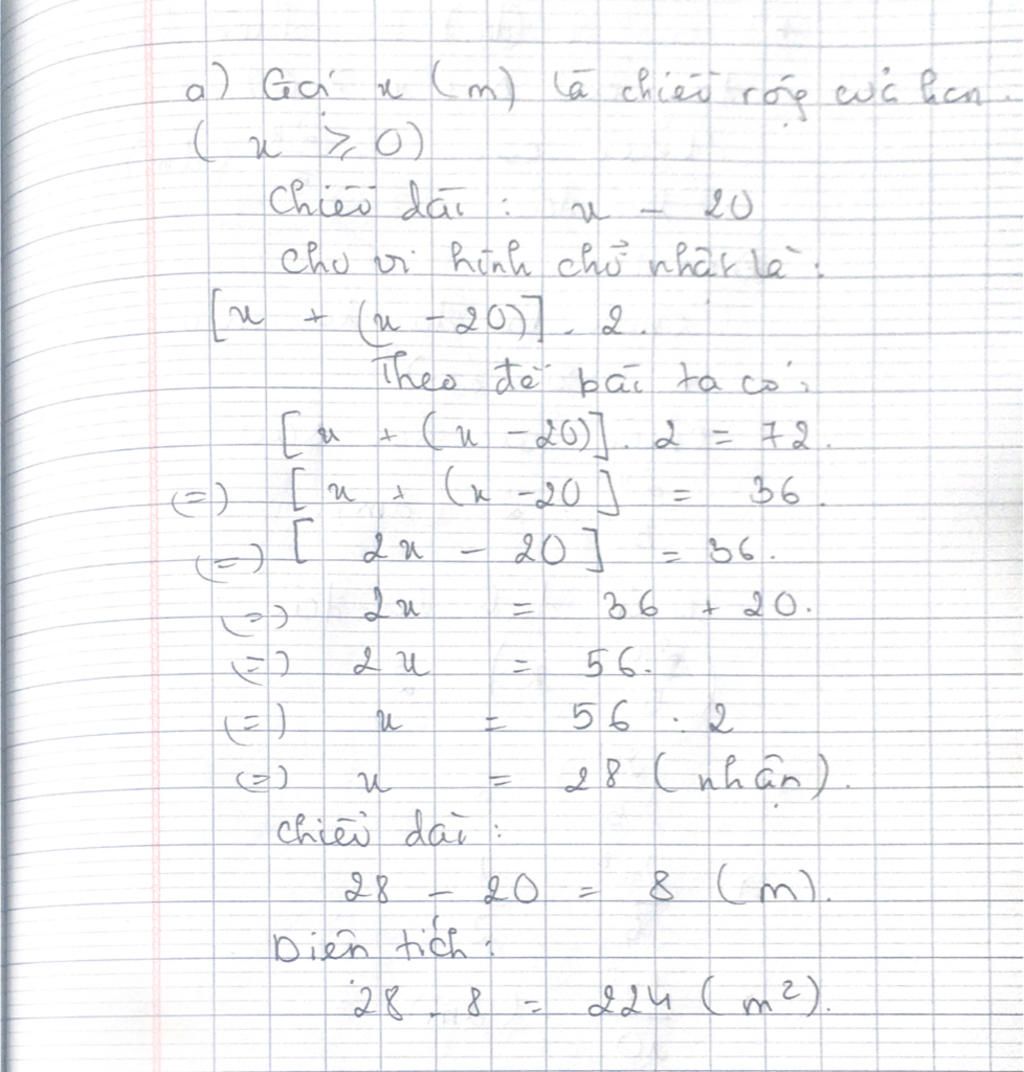 a) Gọi x (m) là chiều rộng của hcn.
( x ⩾ 0)
Chiều dài : x - 20
Chu vi hình chữ nhật là :
[x + (x - 20)] . 2.
Theo đề bài ta có :
[x + (x - 20)] . 2 = 72.
(=) [x + (x - 20] = 36.
(=) [ 2x - 20] = 36.
(=) 2x = 36 + 20.
(=) 2x = 56.
(=) x = 56 : 2
(=) x = 28 (nhận).
Chiều dài :
28 - 20 = 8 (m).
Diện tích :
28 . 8 = 224 (m²).